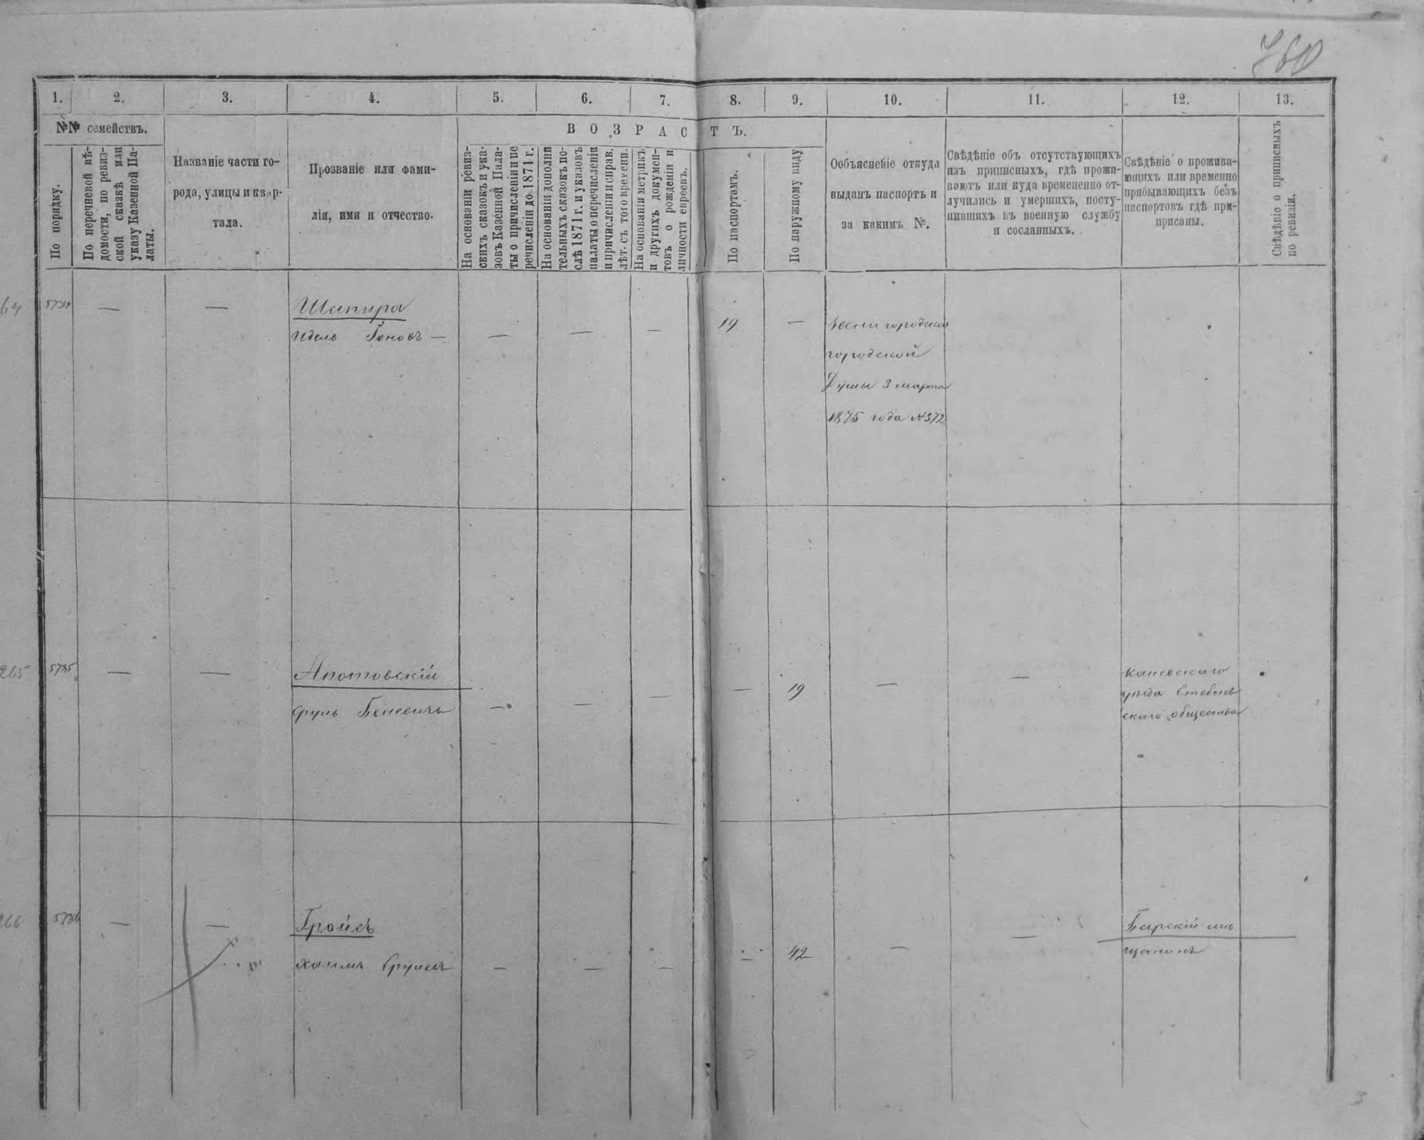 760
1. 2. 3. 4. 5. 6. 7. 8. 9. 10. 11. 12. 13.
№№ семействъ.
По порядку.
По перечневой вѣ-
домости, по ревиз-
ской сказкѣ или
указу Казенной Па-
латы.
Названіе части го-
рода, улицы и квар-
тала.
Прозваніе или фами-
лія, имя и отчество.
ВОЗРАСТЪ.
На основаніи ревиз-
скихъ сказокъ и ука-
зовъ Казенной Пала-
ты о причисленіи и пе
речисленіи до 1871 г.
На основаніи дополни
тельныхъ сказокъ по-
слѣ 1871 г. и указовъ
палаты о перечисленіи
и причисленіи и справ.
лѣт. съ того времени.
На основаніи метрикъ
и другихъ докумен-
товъ о рожденіи и
личности евреевъ.
По паспортамъ.
По наружному виду
Ообъясненіе откуда
выданъ паспортъ и
за какимъ №.
Свѣдѣніе объ отсутствующихъ
изъ приписныхъ, гдѣ прожи-
ваютъ или куда временно от-
лучились и умершихъ, посту-
пившихъ въ военную службу
и сосланныхъ.
Свѣдѣніе о прожива-
ющихъ или временно
прибывающихъ безъ
паспортовъ гдѣ при-
писаны.
Свѣдѣніе о приписныхъ
по ревизіи.
64 — — Шапира
Идель — — — — 19 —
городской
Думы 3 марта
1875 года №372
265 5785 — — Апотовскій
Сруль Беневичъ — — — — 19 — —
Каневскаго
уѣзда Стеблев
скаго общества
266 5786 — — Гройсъ
Хаимъ — — — — 42 — —
Барскій мѣ
щанинъ
3